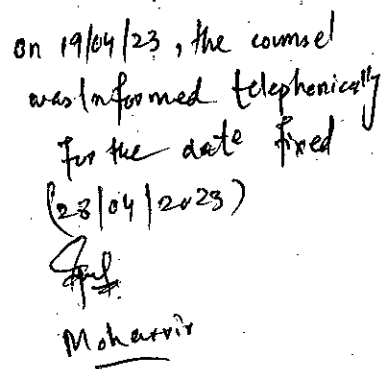 on 19/04/23, the counsel
was Informed telephenically
for the date fixed
(28/04/2023)
Moharrir